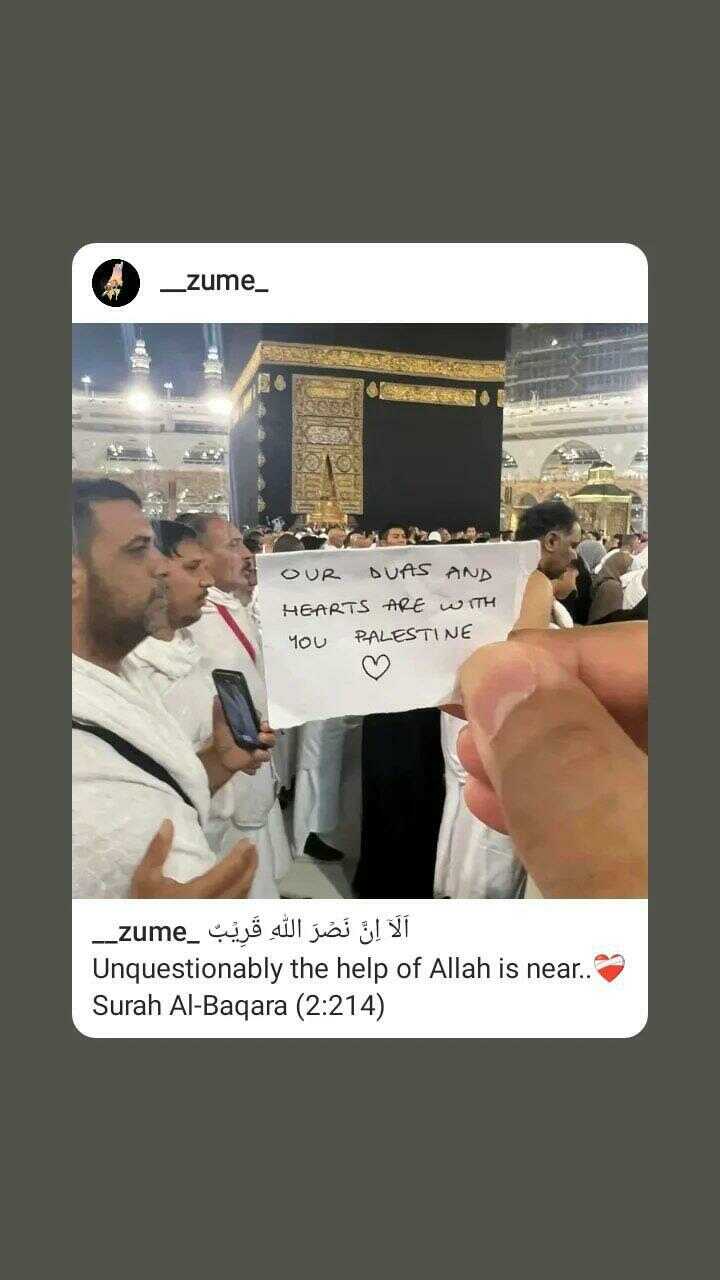 __zume_
OUR DUAS AND
HEARTS ARE WITH
YOU PALESTINE
♡
__zume_ اَلَآ اِنَّ نَصْرَ اللّٰهِ قَرِيْبٌ
Unquestionably the help of Allah is near..❤️‍🩹
Surah Al-Baqara (2:214)